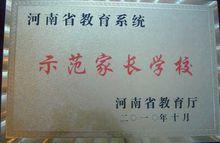 河南省教育系统
示范家长学校
河南省教育厅
二〇一〇年十月